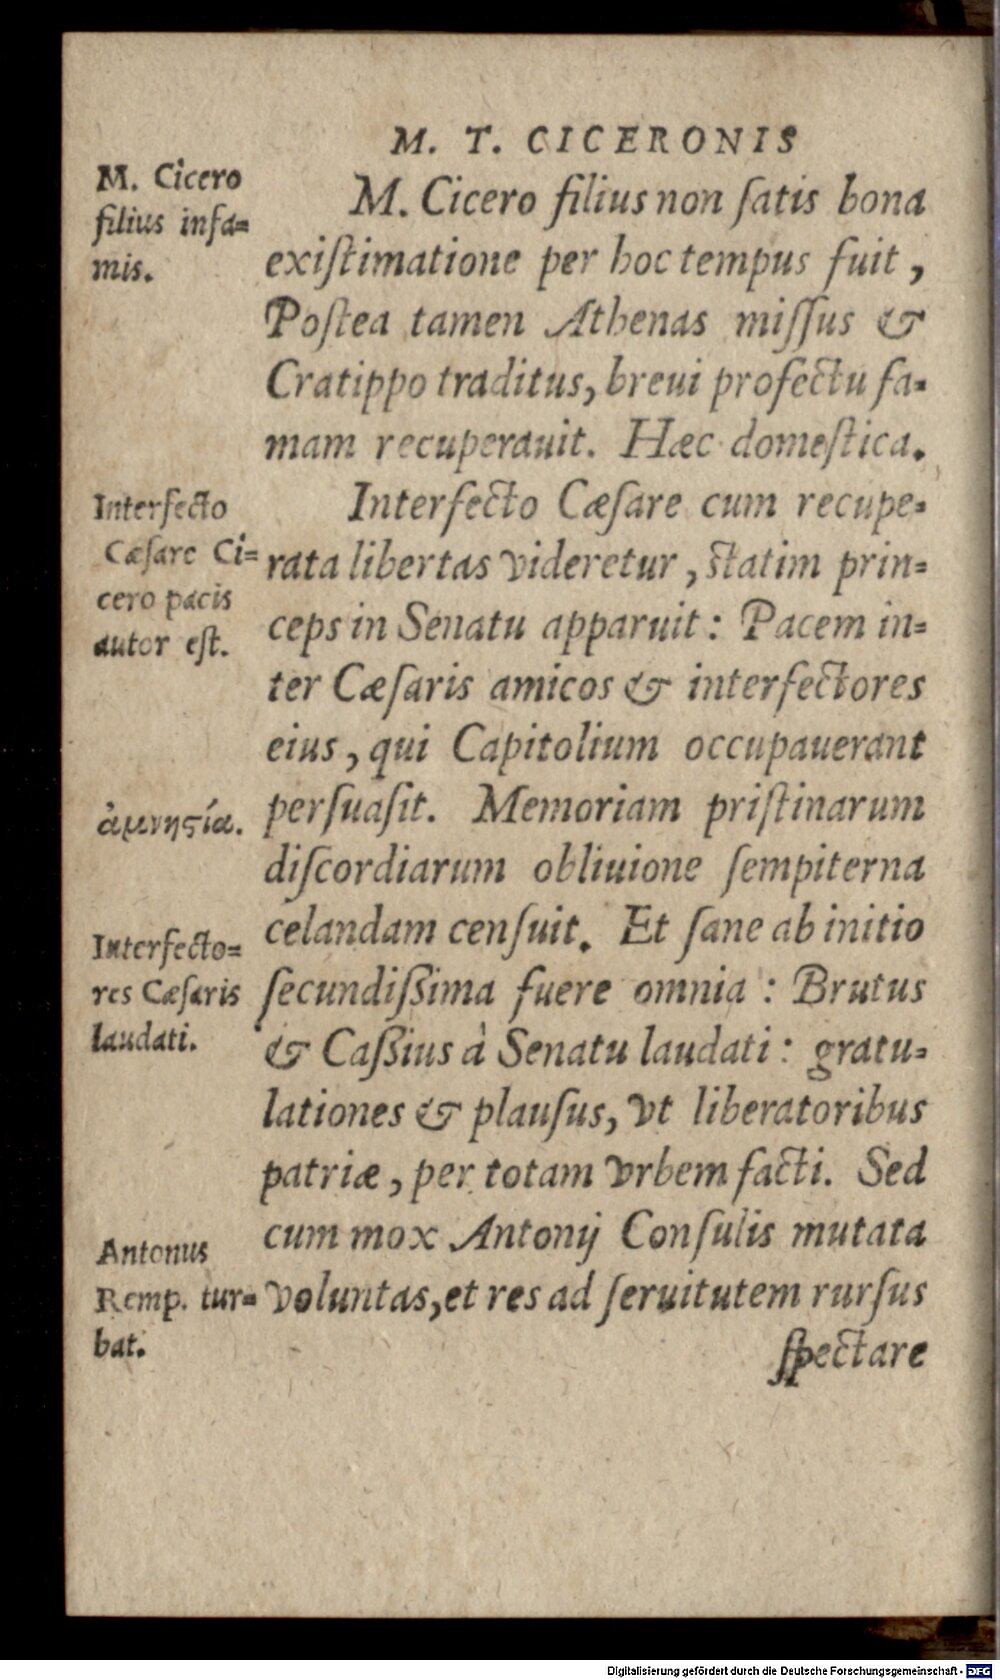 M. T. CICERONIS
M. Cicero
filius infa=
mis.
M. Cicero filius non ſatis bona
exiſtimatione per hoc tempus fuit,
Poſtea tamen Athenas miſſus &
Cratippo traditus, breui profectu fa=
mam recuperauit. Hæc domeſtica.
Interfecto
Cæſare Ci=
cero pacis
autor eſt.
Interfecto Cæſare cum recupe=
rata libertas videretur, ſtatim prin=
ceps in Senatu apparuit: Pacem in=
ter Cæſaris amicos & interfectores
eius, qui Capitolium occupauerant
ἀμνηςία.
perſuaſit. Memoriam priſtinarum
diſcordiarum obliuione ſempiterna
celandam cenſuit. Et ſane ab initio
Interfecto=
res Cæſaris
laudati.
ſecundiſßima fuere omnia: Brutus
& Caßius à Senatu laudati: gratu=
lationes & plauſus, vt liberatoribus
patriæ, per totam vrbem facti. Sed
Antonus
Remp. tur=
bat.
cum mox Antonij Conſulis mutata
voluntas, et res ad ſeruitutem rurſus
ſpectare
Digitalisierung gefördert durch die Deutsche Forschungsgemeinschaft - DFG